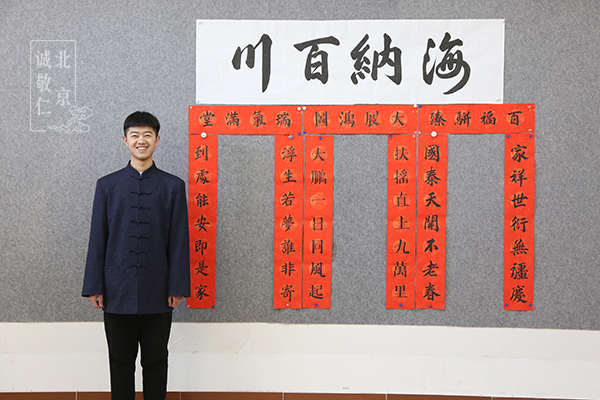 海納百川
百福駢臻
家祥世衍無疆慶
國泰天開不老春
大展鴻圖
大鵬一日同風起
扶搖直上九萬里
瑞氣滿堂
浮生若夢誰非寄
到處能安即是家
北京
诚敬仁